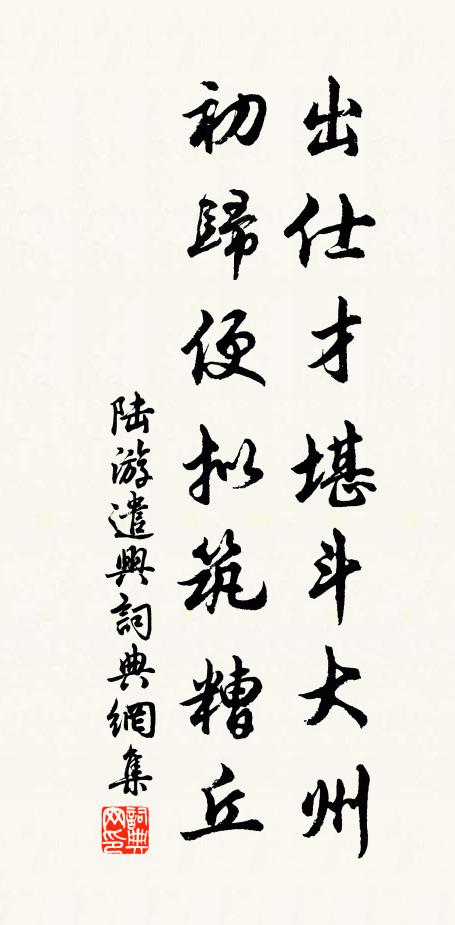 出仕才堪斗大州
初歸便拟筑糟丘
陆游遣興詞典網集
詞典网印